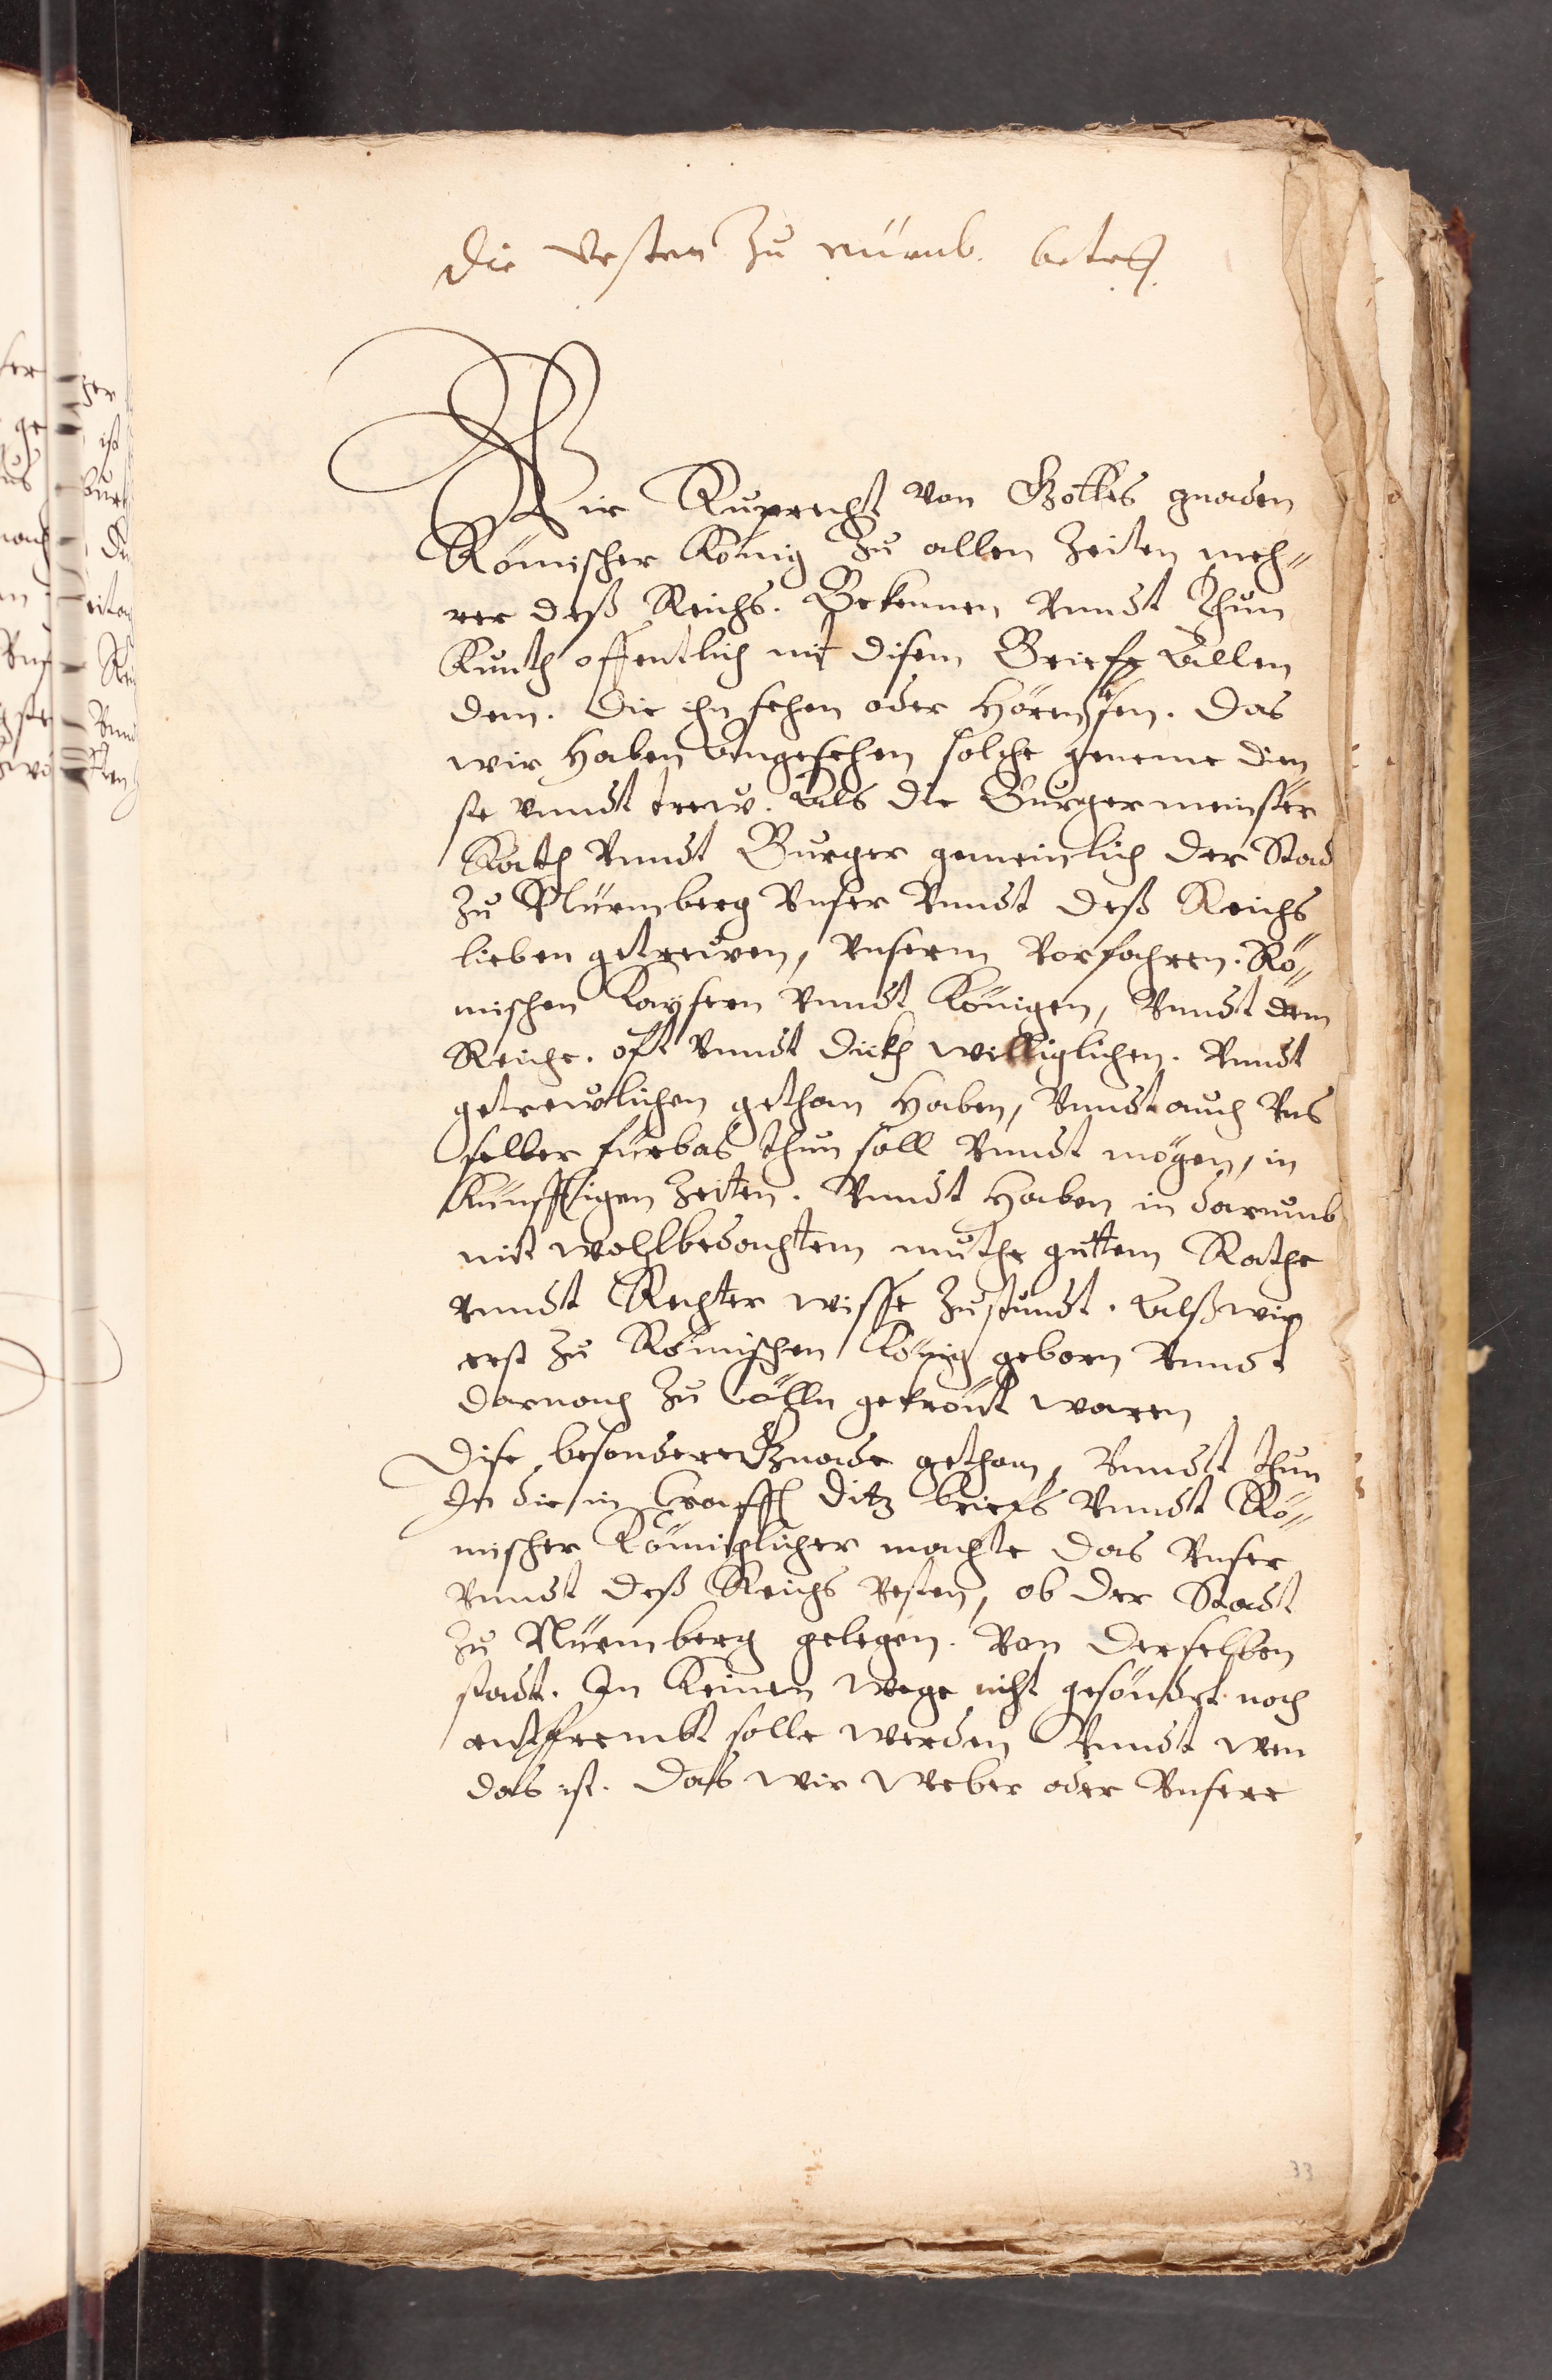 die Vesten zu nürnb. betreff.
Wir Ruprecht von Gottes gnaden
Römischer König zu allen Zeiten meh=
rer deß Reichs. Bekennen Vnndt Thun
Kunth offentlich mit disem Brieffe Allen
den. Die ihn sehen oder hören lesen. Das
wir haben angesehen solche geneme dien
ste vnndt trew. Als die Burgermeinster
Rath Vnndt Burger gemeinlich der Stad
zu Nürmberg Vnser Vnndt deß Reichs
lieben getrewen, Vnserm Vorfahren. Rö=
mischen Kaysern Vnndt Königen, Vnndt dem
Reiche. oft Vnndt dickh williglichen. Vnndt
getrewlichen gethan haben, Vnndt auch Vns
selber fürbas thun soll Vnndt mögen, in
Künfftigen Zeiten. Vnndt haben in darumb
mit wohlbedachtem muthe guttem Rathe
vnndt Rechter wisse zustundt. Alß wir
erst zu Römischen König geborn Vnndt
darnach zu Cölln gekrönt waren
Dise besondere Gnade gethan, Vnndt thun
In die in Crafft ditz briefs Vnndt Rö=
mischer Königlicher machte das Vnser
Vnndt deß Reichs Vesten, ob der Stadt
zu Nürmberg gelegen. Von derselben
stadt. In Keinen wege nicht gesöndert noch
entfrembt solle werden Vnndt wen
das ist. Das wir weber oder Vnsere
33